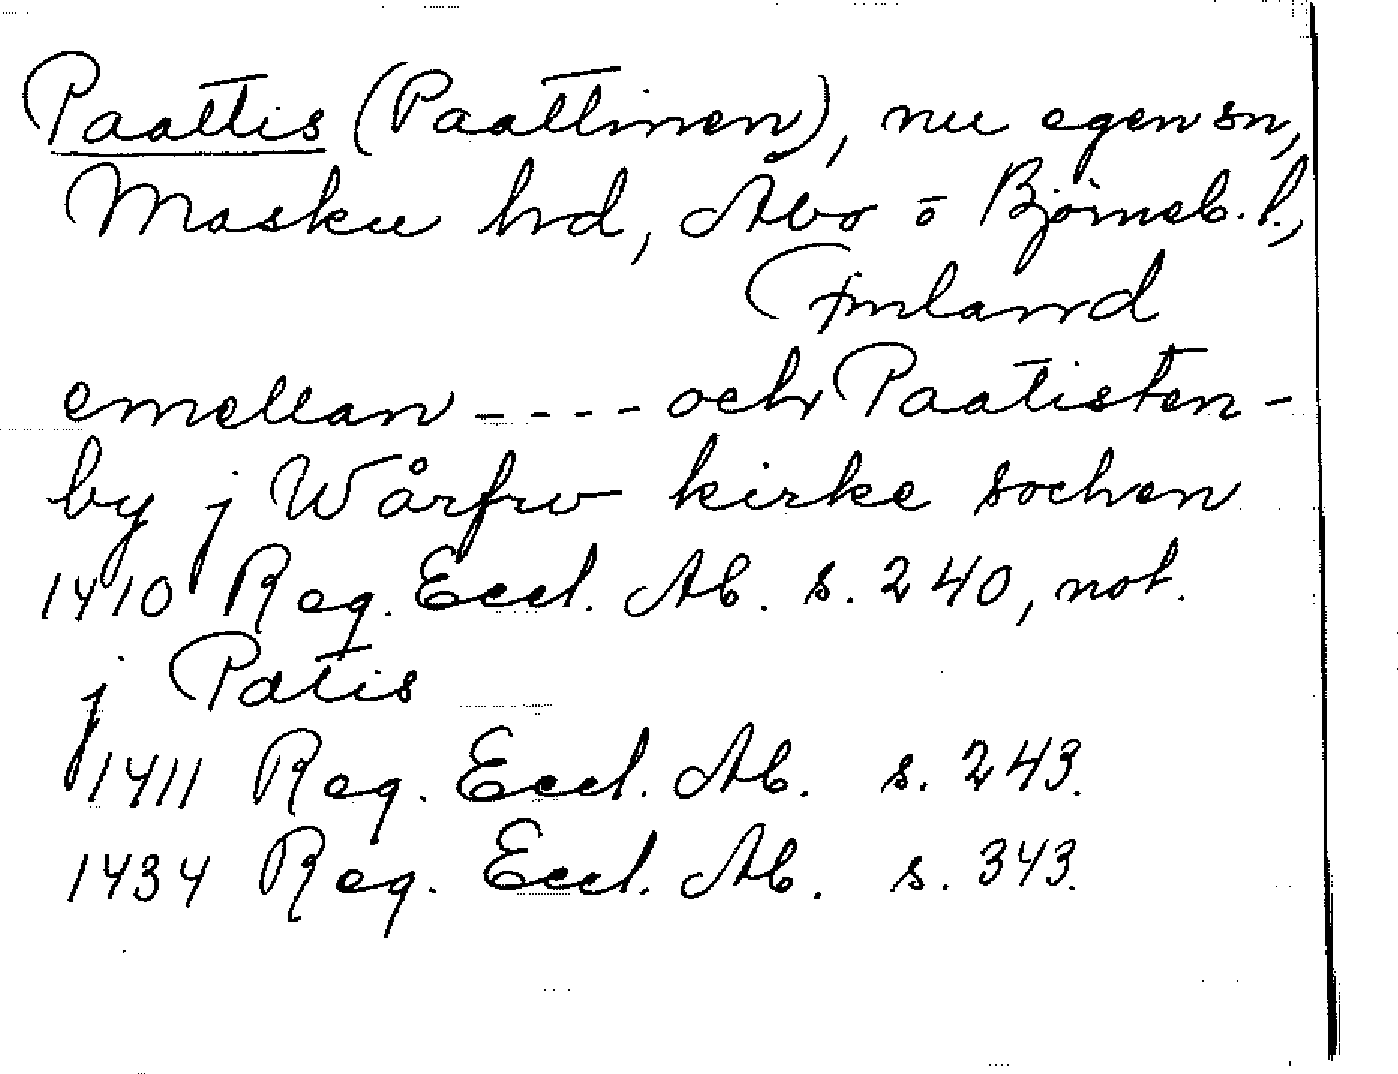 Paattis (Paattinen), nu egen sn,
Masku hd, Åbo o Björneb. l.,
Finland
emellan - - - - och Paatisten-
by j Wårfrw kirke sochen
1410 Reg. Eccl. Ab. s. 240, not.
j Patis
1411 Reg. Eccl. Ab. s. 243.
1434 Reg. Eccl. Ab. s. 343.